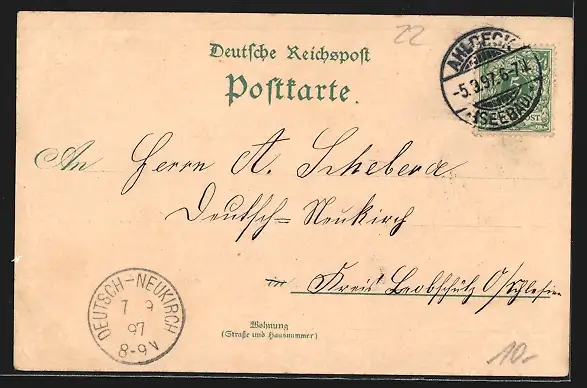 22
Deutsche Reichspost
Postkarte.
AHLBECK
-5.9.97. 6-7N.
(SEEBAD)
An Herrn A. Schebera
Deutsch=Neukirch
in Kreis Leobschütz O/Schlesien
DEUTSCH-NEUKIRCH
7 9
97
8-9 V
Wohnung
(Straße und Hausnummer)
10.-